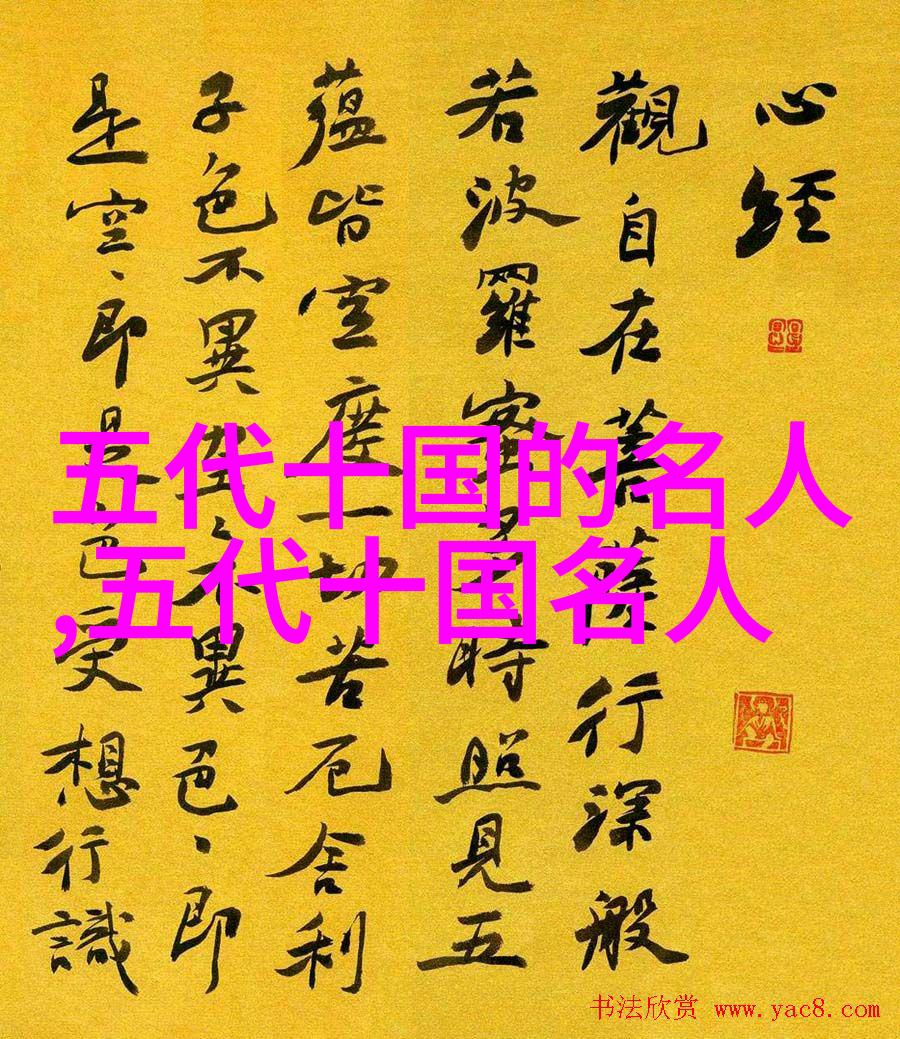 心經
觀自在菩薩行深般
若波羅蜜多時照見五
蘊皆空度一切苦厄舍利
子色不異空不異色、即
是空、即是色受想行識
五代十国的名人
,五代十国名人
书法欣赏 www.yac8.com